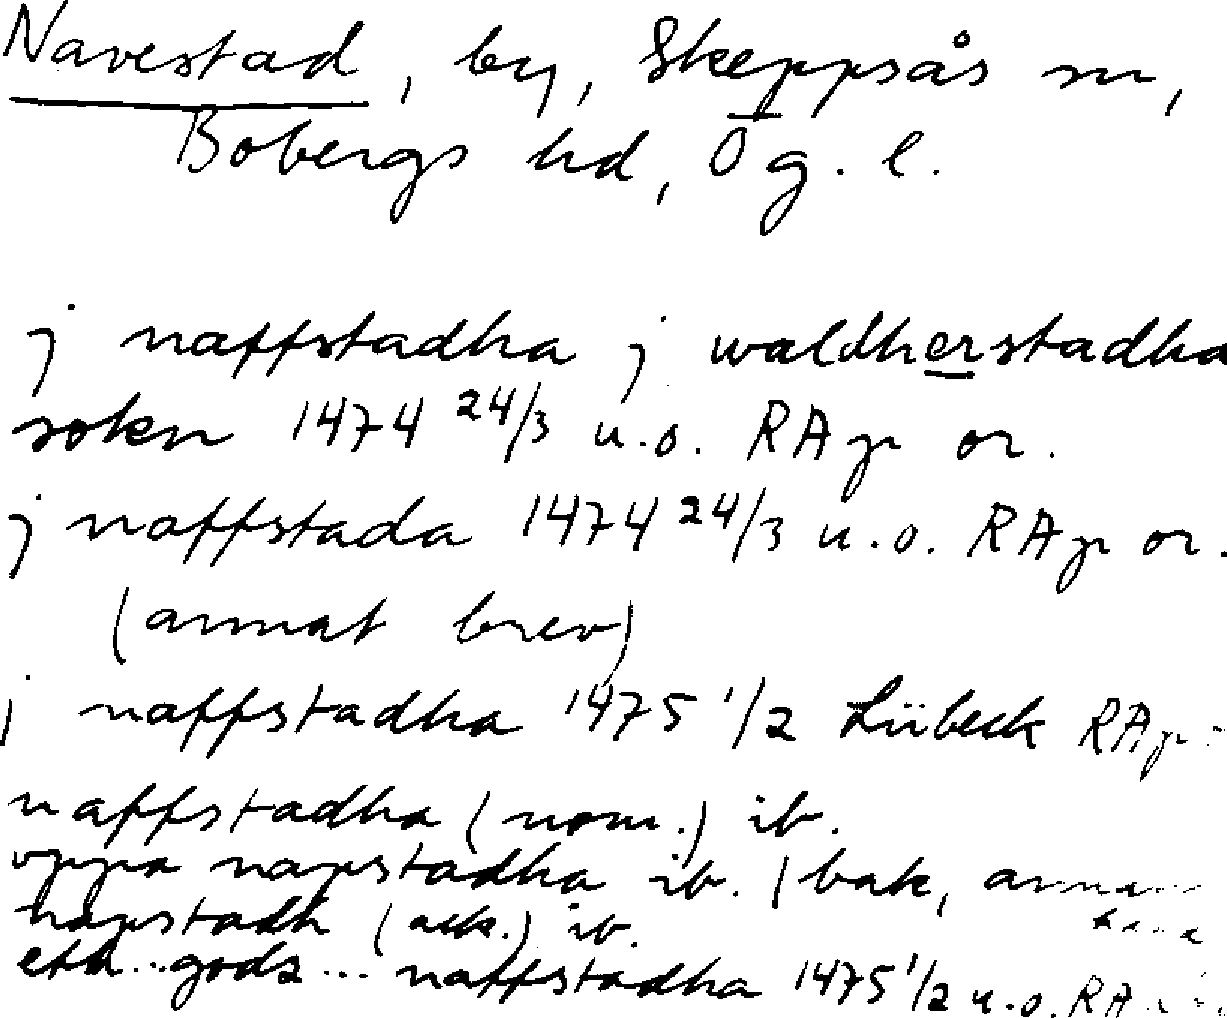 Navestad, by, Skeppsås sn,
Bobergs hd, Ög. l.
j naffstadha j waldherstadha
sokn 1474 24/3 u.o. RAp or.
j naffstada 1474 24/3 u.o. RAp or.
(annat brev)
j naffstadha 1475 1/2 Lübeck RAp
naffstadha (nom.) ib.
vppa napstadha ib. (bak, annan
napstadh (ack.) ib.
eth...gods... naffstadha 1475 1/2 u.o. RA